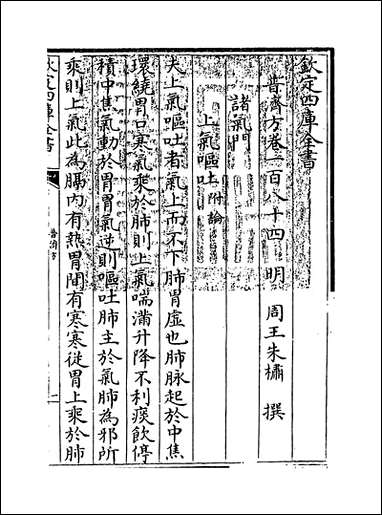 欽定四庫全書
普濟方卷一百八十四 明 周王朱橚 撰
諸氣門
上氣嘔吐附論
夫上氣嘔吐者氣上而不下肺胃虛也肺脉起於中焦
環繞胃口寒氣乘於肺則上氣喘滿升降不利痰飲停
積中焦氣動於胃胃氣逆則嘔吐肺主於氣肺為邪所
乘則上氣此為膈内有熱胃間有寒寒從胃上乘於肺
欽定四庫全書
普濟方